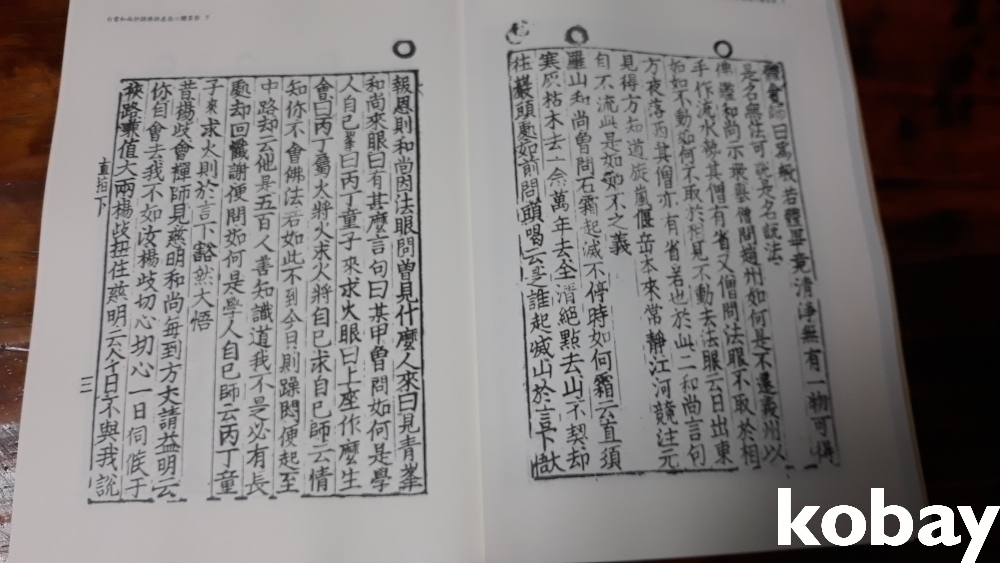 體會師曰爲般若體畢竟清淨無有一物可得
是名無法可說是名說法
鑒和尚示衆擧僧問趙州如何是不遷義州以
手作流水勢其僧有省又僧問法眼不取於相
如如不動如何不取於相見不動去法眼云日出東
方夜落西其僧亦有省若也於此二和尚言句
見得方知道旋嵐偃岳本來常靜江河競注元
自不流此是如如不之義
羅山和尚曾問石霜起滅不停時如何霜云直須
寒灰枯木去一念萬年去全清絕點去山不契却
往巖頭處如前問頭喝云是誰起滅山於言下大
白雲和尙抄錄佛祖直指心體要節 下
報恩則和尚因法眼問曾見什麼人來曰見青峯
和尚來眼曰有甚麼言句曰某甲曾問如何是學
人自己峯曰丙丁童子來求火眼曰上座作麼生
會曰丙丁屬火將火求火將自己求自己師云情
知你不會佛法若如此不到今日則躁悶便起至
中路却云他是五百人善知識道我不是必有長
處却回懺謝便問如何是學人自己師云丙丁童
子來求火則於言下豁然大悟
昔楊歧會禪師見慈明和尚每到方丈請益明云
你自會去我不如汝楊歧切心切心一日伺候于
狹路乘值大雨楊歧扭住慈明云今日不與我說
直指下
三
kobay